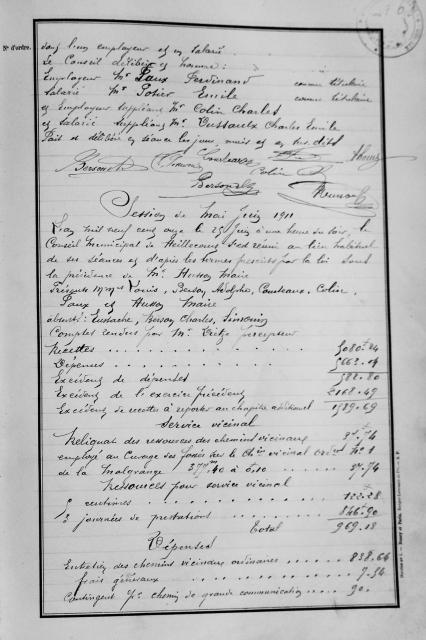 N° d'ordre.
sous leur employeur et un salarié
Le Conseil délibère et nomme :
Employeur Mr Paux Ferdinand comme titulaire
Salarié Mr Potier Emile comme titulaire
et Employeur suppléant Mr Colin Charles
et Salarié suppléant Mr Dussaulx Charles Emile
Fait et délibéré en séance les jours, mois et an dits
Colin
Session de Mai Juin 1911
L'an mil neuf cent onze le 25 Juin à une heure du soir, le
Conseil Municipal de Heillecourt s'est réuni au lieu habituel
de ses séances et d'après les termes prescrits par la loi sous
la présidence de Mr Husson Maire
Présents M.M. Louis, Adolphe, Couteaux, Colin,
Paux et Husson Maire
absents : Eustache, Charles, Simonin
Comptes rendus par Mr percepteur
Recettes
Dépenses
Excédent de dépenses 582.80
Excédent de l'exercice précédent
Excédent de recettes à reporter au chapitre additionnel
Service vicinal
Reliquat des ressources des chemins vicinaux 37.74
employé au curage des fossés sur le Chin vicinal ord. No 1
de la Malgrange 377m40 à 0,10 37.74
Ressources pour service vicinal
5 centimes 122.28
3 journées de prestations 846.90
Total 969.18
Dépenses
Entretien des chemins vicinaux ordinaires 838.64
frais généraux
Contingent pr chemin de grande communication 90.